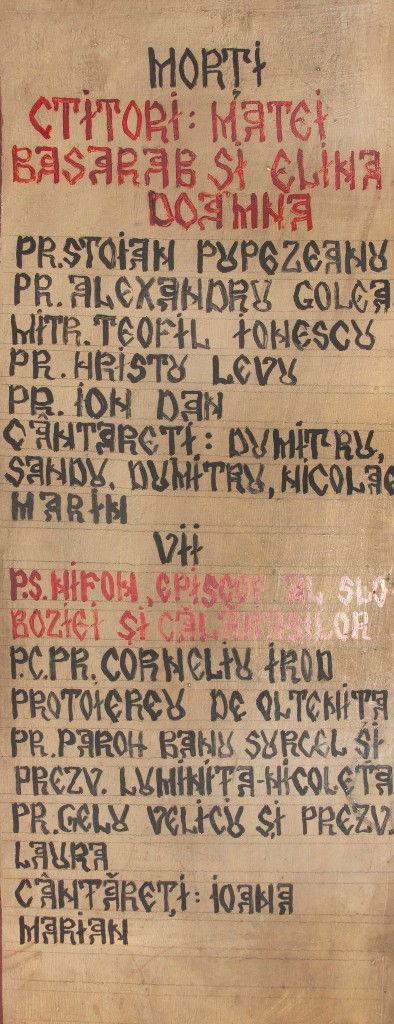 MORȚI
CTITORI: MATEI
BASARAB ȘI ELINA
DOAMNA
PR. STOIAN PUPEZEANU
PR. ALEXANDRU GOLEA
MITR. TEOFIL IONESCU
PR. HRISTU LEVU
PR. ION DAN
CÂNTAREȚI: DUMITRU,
SANDU. DUMITRU, NICOLAE
MARIN
VII
P.S. NIFON, EPISCOP AL SLO-
BOZIEI ȘI CĂLĂRAȘILOR
P.C. PR. CORNELIU IROD
PROTOIEREU DE OLTENIȚA
PR. PAROH BANU SURCEL ȘI
PREZV. LUMINIȚA-NICOLETA
PR. GELU VELICU ȘI PREZV.
LAURA
CÂNTĂREȚI: IOANA
MARIAN